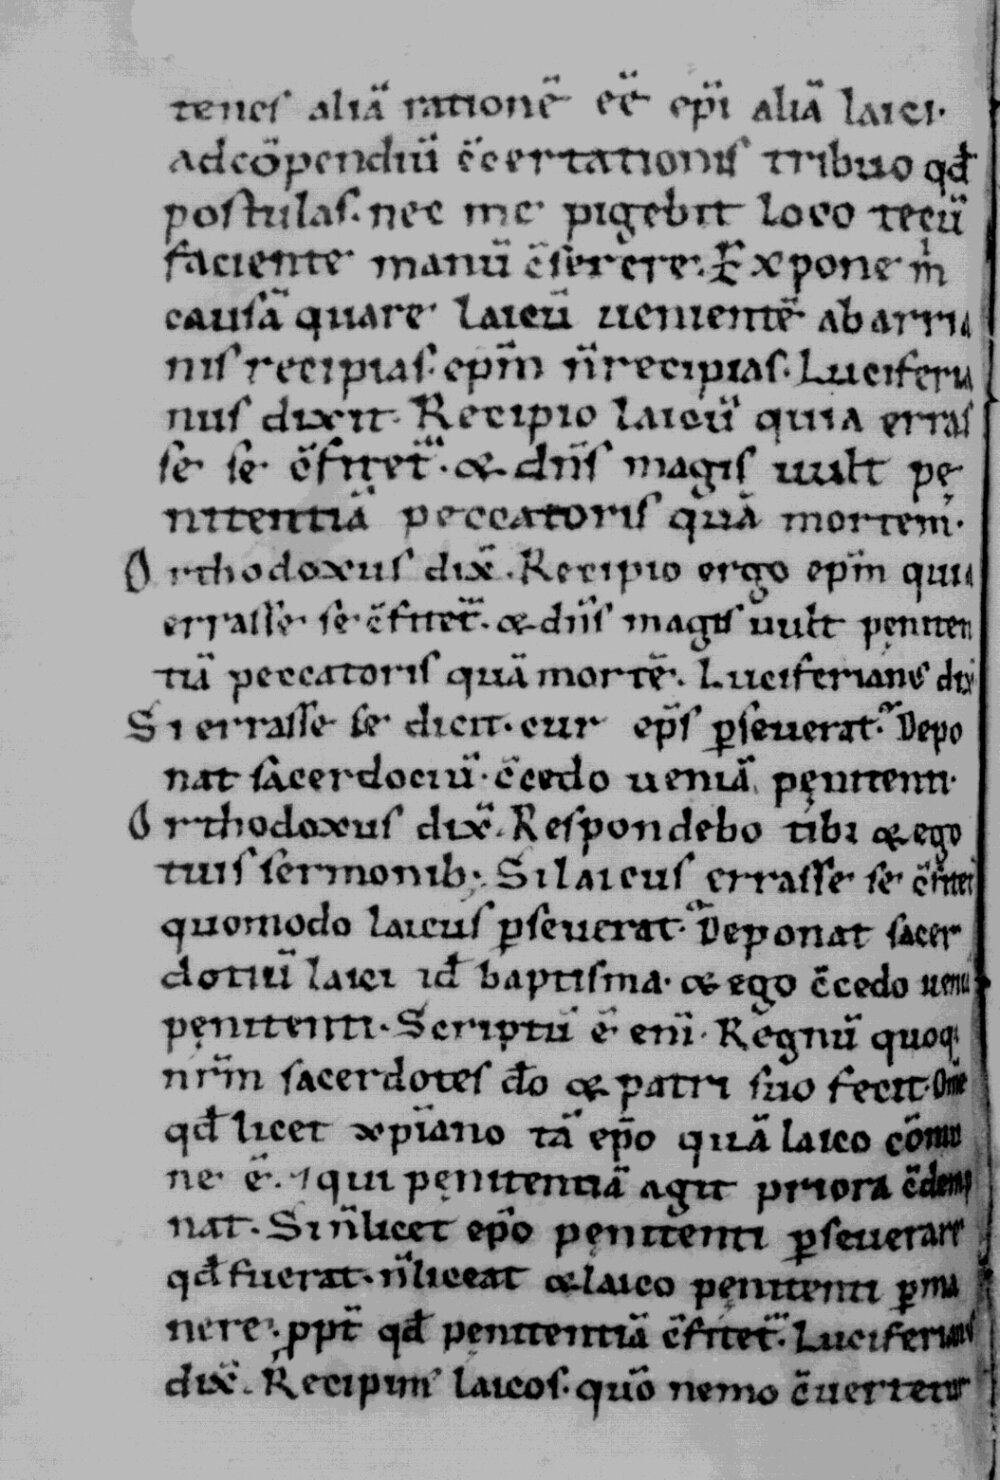 tenes aliā rationē eē ep̄i aliā laici.
adcōpendiū c̄certationis tribuo qđ
postulas. nec me pigebit loco tecū
faciente manū c̄serere. Expone m̄
causā quare laicū uenientē ab arria
nis recipias. ep̄m n̄ recipias. Luciferia
nus dixit. Recipio laicū quia erras
se se c̄fitet̄. & dn̄s magis uult pę
nitentiā peccatoris quā mortem.
Orthodoxus dix̄. Recipio ergo ep̄m quia
errasse se c̄fitet̄. & dn̄s magis uult pęniten
tiā peccatoris quā mortē. Luciferianus dix̄
Si errasse se dicit. cur ep̄s p̱seuerat. Depo
nat sacerdociū. c̄cedo ueniā pęnitenti.
Orthodoxus dix̄. Respondebo tibi & ego
tuis sermonib; Si laicus errasse se c̄fitet̄
quomodo laicus p̱seuerat. Deponat sacer
dotiū laici id̄ baptisma. & ego c̄cedo ueniā
pęnitenti. Scriptū ē eni̅. Regnū quoq;
nr̄m sacerdotes do̅ & patri suo fecit. Om̄e
qđ licet xp̄iano tā ep̄o quā laico cōmu
ne ē. ⁊ qui pęnitentiā agit priora c̄demp
nat. Si n̄ licet ep̄o pęnitenti p̱seuerare
qđ fuerat. n̄ liceat & laico pęnitenti p̱ma
nere. ppt̄ qđ pęnitentiā c̄fitet̄. Luciferianus
dix̄. Recipim' laicos. quō nemo c̄uertetur